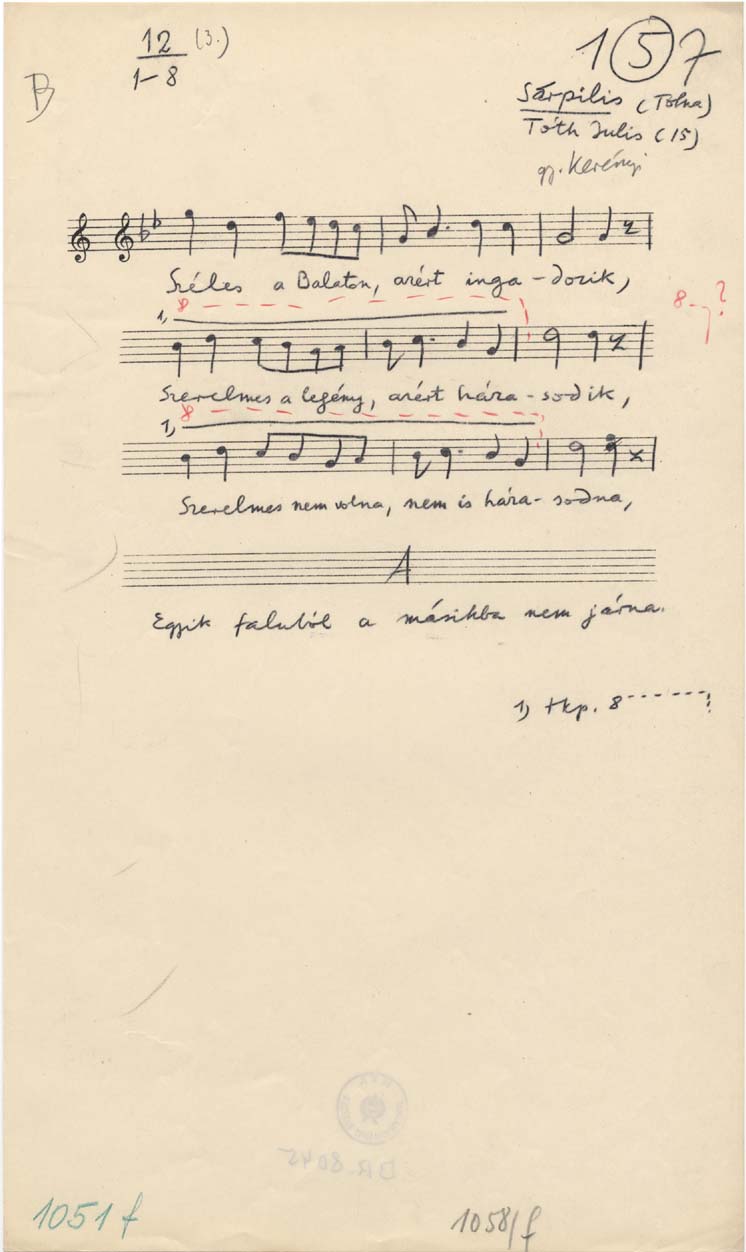 12 (3.)
1-8
B
1 5 7
Sárpilis (Tolna)
Tóth Julis (15)
gy. Kerényi
Széles a Balaton, azért inga-dozik,
8
8 ?
1,
Szerelmes a legény, azért hára-sodik,
8
1,
Szerelmes nem volna, nem is hára-sodna,
A
Egyik faluból a másikba nem járna.
1, tkp. 8
DR. 8045
1051 f
1058/f